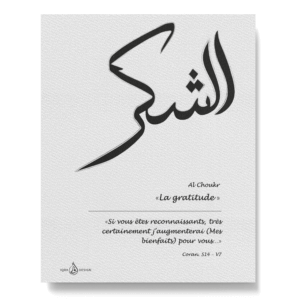 الشكر
Al Choukr
«La gratitude»
«Si vous êtes reconnaissants, très
certainement j'augmenterai (Mes
bienfaits) pour vous...»
Coran, S14 - V7